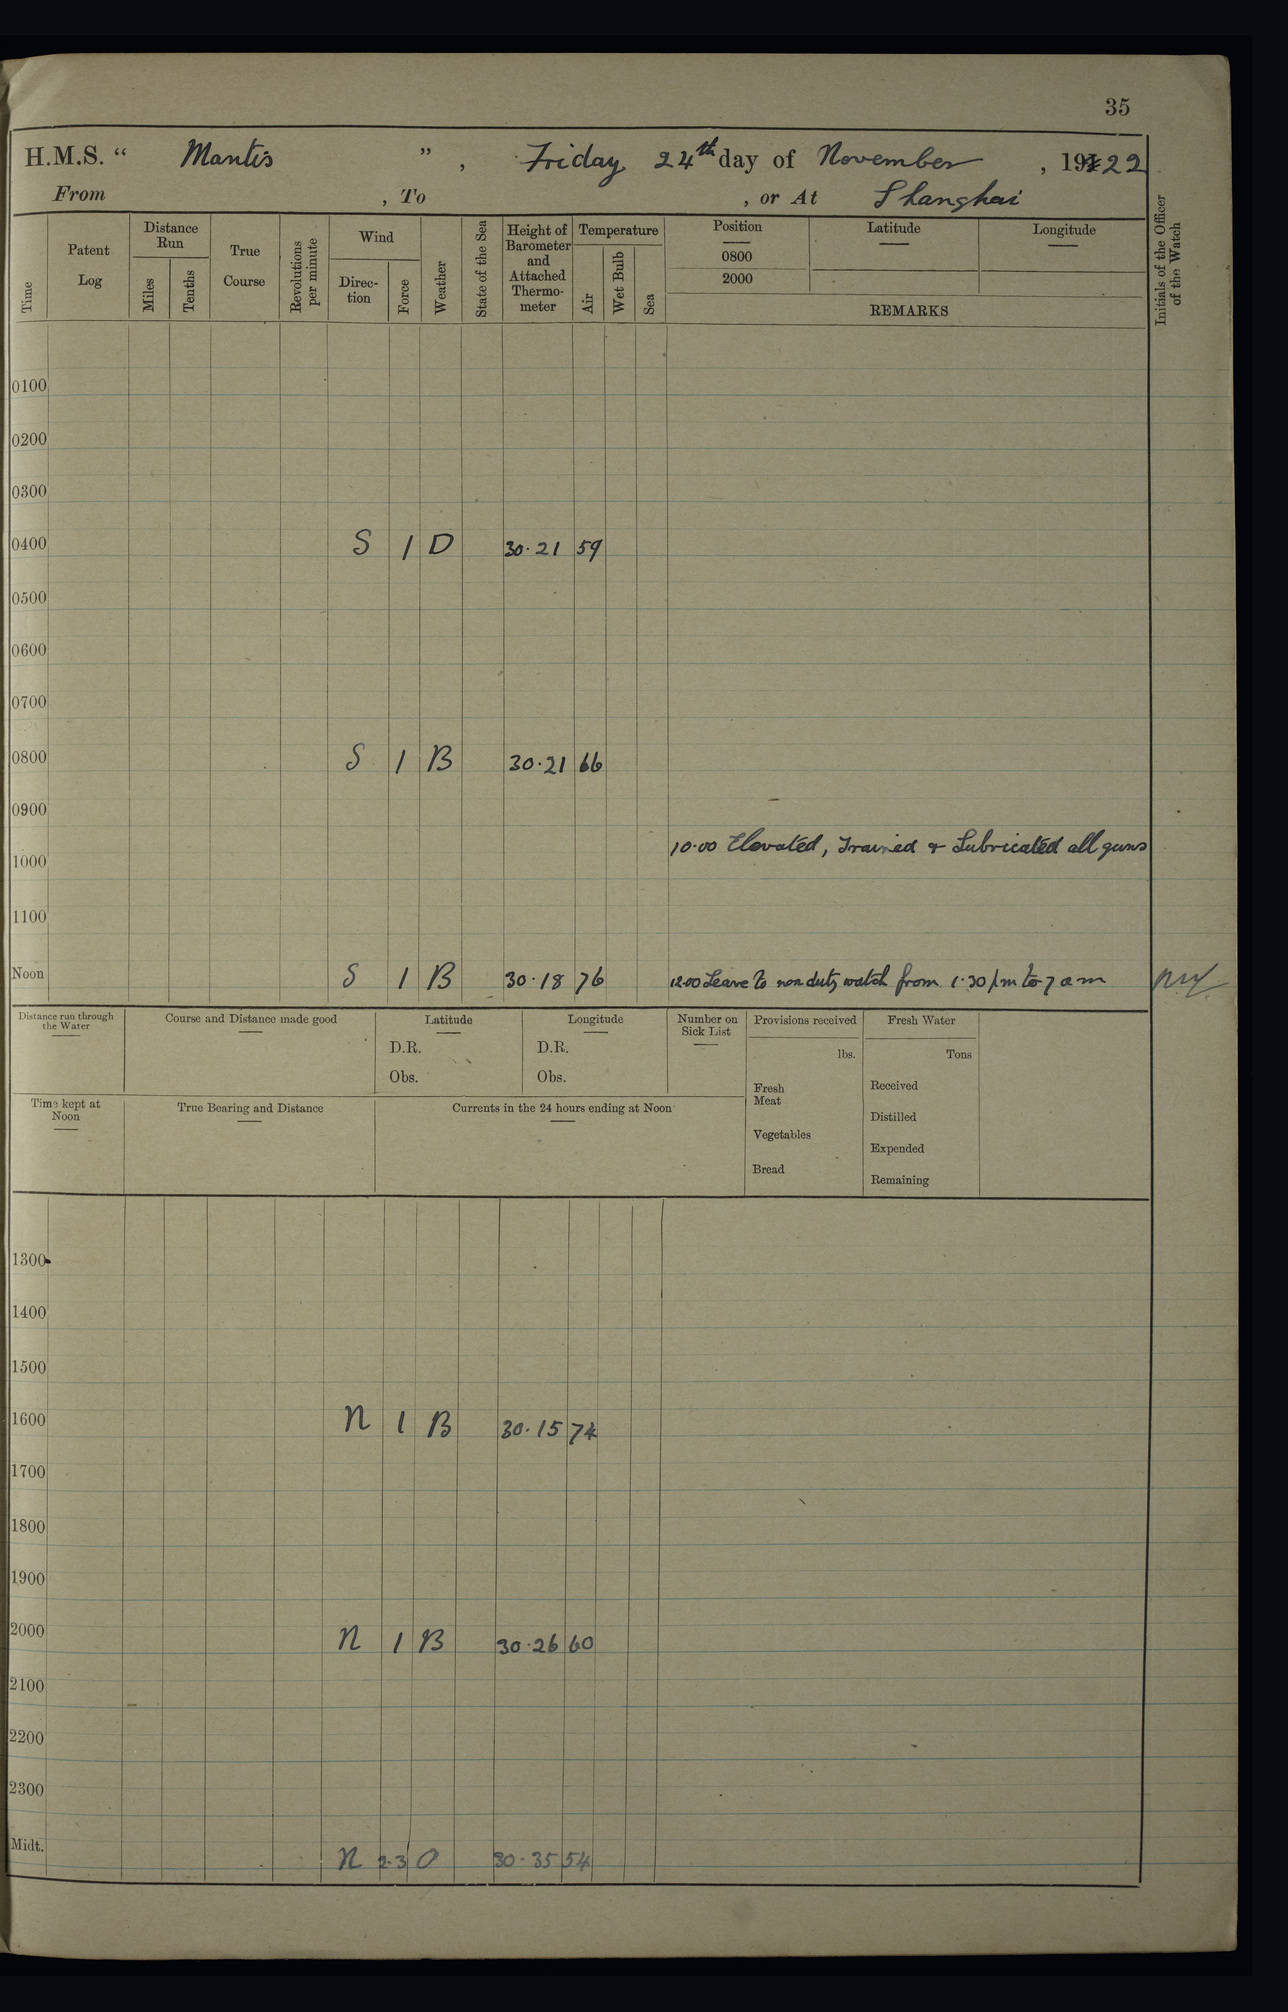 35
H.M.S. “ Mantis ” , Friday 24th day of November , 1922
From , To , or At Shanghai
Time
Patent Log
Distance Run
Miles
Tenths
True Course
Revolutions per minute
Wind
Direc-tion
Force
Weather
State of the Sea
Height of Barometer and Attached Thermo-meter
Temperature
Air
Wet Bulb
Sea
Position
0800
2000
Latitude
Longitude
REMARKS
Initials of the Officer of the Watch
0100
0200
0300
0400 S 1 D 30.21 59
0500
0600
0700
0800 S 1 B 30.21 66
0900
10.00 Elevated, Trained & Lubricated all guns
1000
1100
Noon S 1 B 30.18 76 12.00 Leave to non duty watch from 1.30 pm to 7 am
Distance run through the Water
Course and Distance made good
Latitude
D.R.
Obs.
Longitude
D.R.
Obs.
Number on Sick List
Provisions received
lbs.
Fresh Meat
Vegetables
Bread
Fresh Water
Tons
Received
Distilled
Expended
Remaining
Time kept at Noon
True Bearing and Distance
Currents in the 24 hours ending at Noon
1300
1400
1500
1600 N 1 B 30.15 74
1700
1800
1900
2000 N 1 B 30.26 60
2100
2200
2300
Midt. N 2.3 O 30.35 54